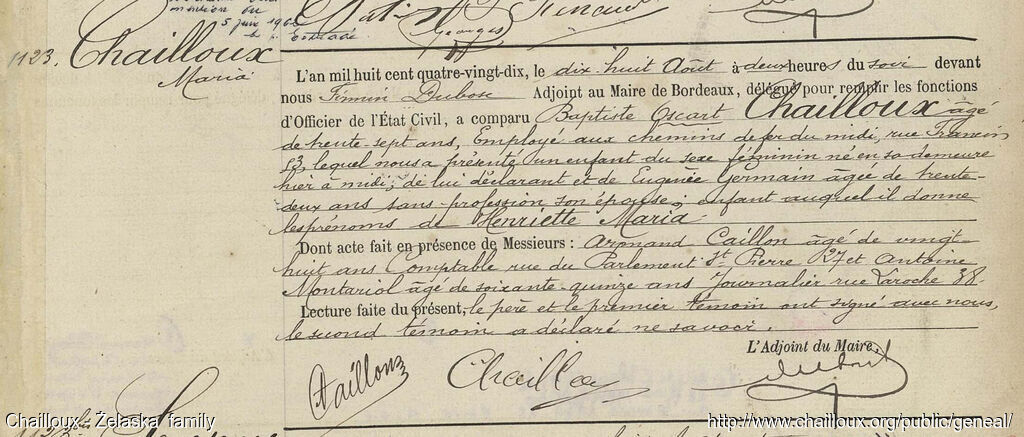 mention du
5 juin 19
Georges
1123.
Chailloux
Maria
L'an mil huit cent quatre-vingt-dix, le dix-huit Août à deux heures du soir devant
nous Firmin Dubosc Adjoint au Maire de Bordeaux, délégué pour remplir les fonctions
d'Officier de l'État Civil, a comparu Baptiste Oscart Chailloux âgé
de trente-sept ans, Employé aux chemins de fer du midi, rue Francin
53, lequel nous a présenté un enfant du sexe féminin né en sa demeure
hier à midi; de lui déclarant et de Eugénée Germain âgée de trente-
deux ans sans profession son épouse; enfant auquel il donne
les prénoms de Henriette Maria
Dont acte fait en présence de Messieurs : Armand Caillon âgé de vingt-
huit ans Comptable rue du Parlement St Pierre 27 et Antoine
Montariol âgé de soixante-quinze ans Journalier rue Laroche 38.
Lecture faite du présent, le père et le premier témoin ont signé avec nous,
le second témoin a déclaré ne savoir.
L'Adjoint du Maire,
Caillon Chailloux Dubosc
Chailloux - Żelaska family
http://www.chailloux.org/public/geneal/